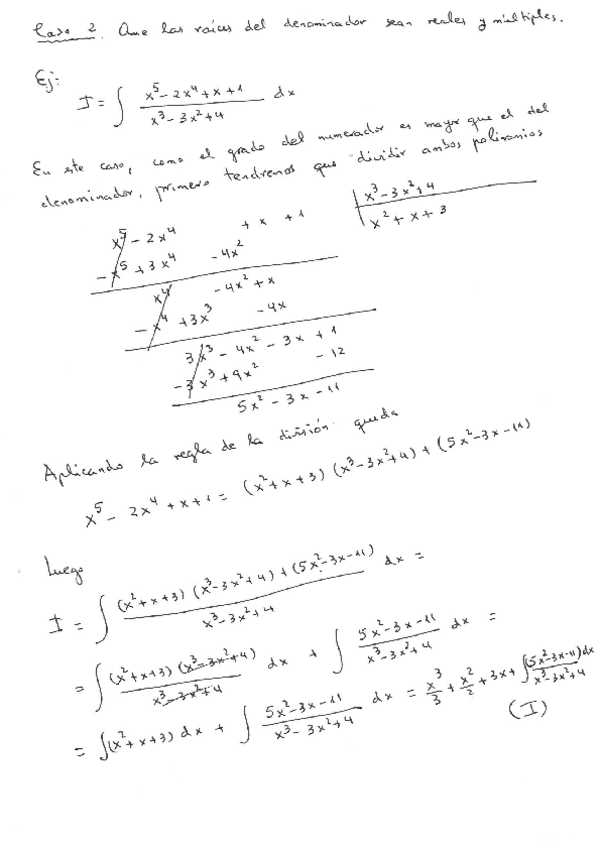 Caso 2. Que las raíces del denominador sean reales y múltiples.
Ej:
I = ∫ (x^5 - 2x^4 + x + 1)/(x^3 - 3x^2 + 4) dx
En este caso, como el grado del numerador es mayor que el del
denominador, primero tendremos que dividir ambos polinomios
x^5 - 2x^4 + x + 1 | x^3 - 3x^2 + 4
-x^5 + 3x^4 - 4x^2 x^2 + x + 3
x^4 - 4x^2 + x
-x^4 + 3x^3 - 4x
3x^3 - 4x^2 - 3x + 1
-3x^3 + 9x^2 - 12
5x^2 - 3x - 11
Aplicando la regla de la división queda
x^5 - 2x^4 + x + 1 = (x^2 + x + 3) (x^3 - 3x^2 + 4) + (5x^2 - 3x - 11)
Luego
I = ∫ ((x^2 + x + 3) (x^3 - 3x^2 + 4) + (5x^2 - 3x - 11))/(x^3 - 3x^2 + 4) dx =
= ∫ ((x^2 + x + 3) (x^3 - 3x^2 + 4))/(x^3 - 3x^2 + 4) dx + ∫ (5x^2 - 3x - 11)/(x^3 - 3x^2 + 4) dx =
= ∫ (x^2 + x + 3) dx + ∫ (5x^2 - 3x - 11)/(x^3 - 3x^2 + 4) dx = x^3/3 + x^2/2 + 3x + ∫ (5x^2 - 3x - 11) dx/(x^3 - 3x^2 + 4)
(I)